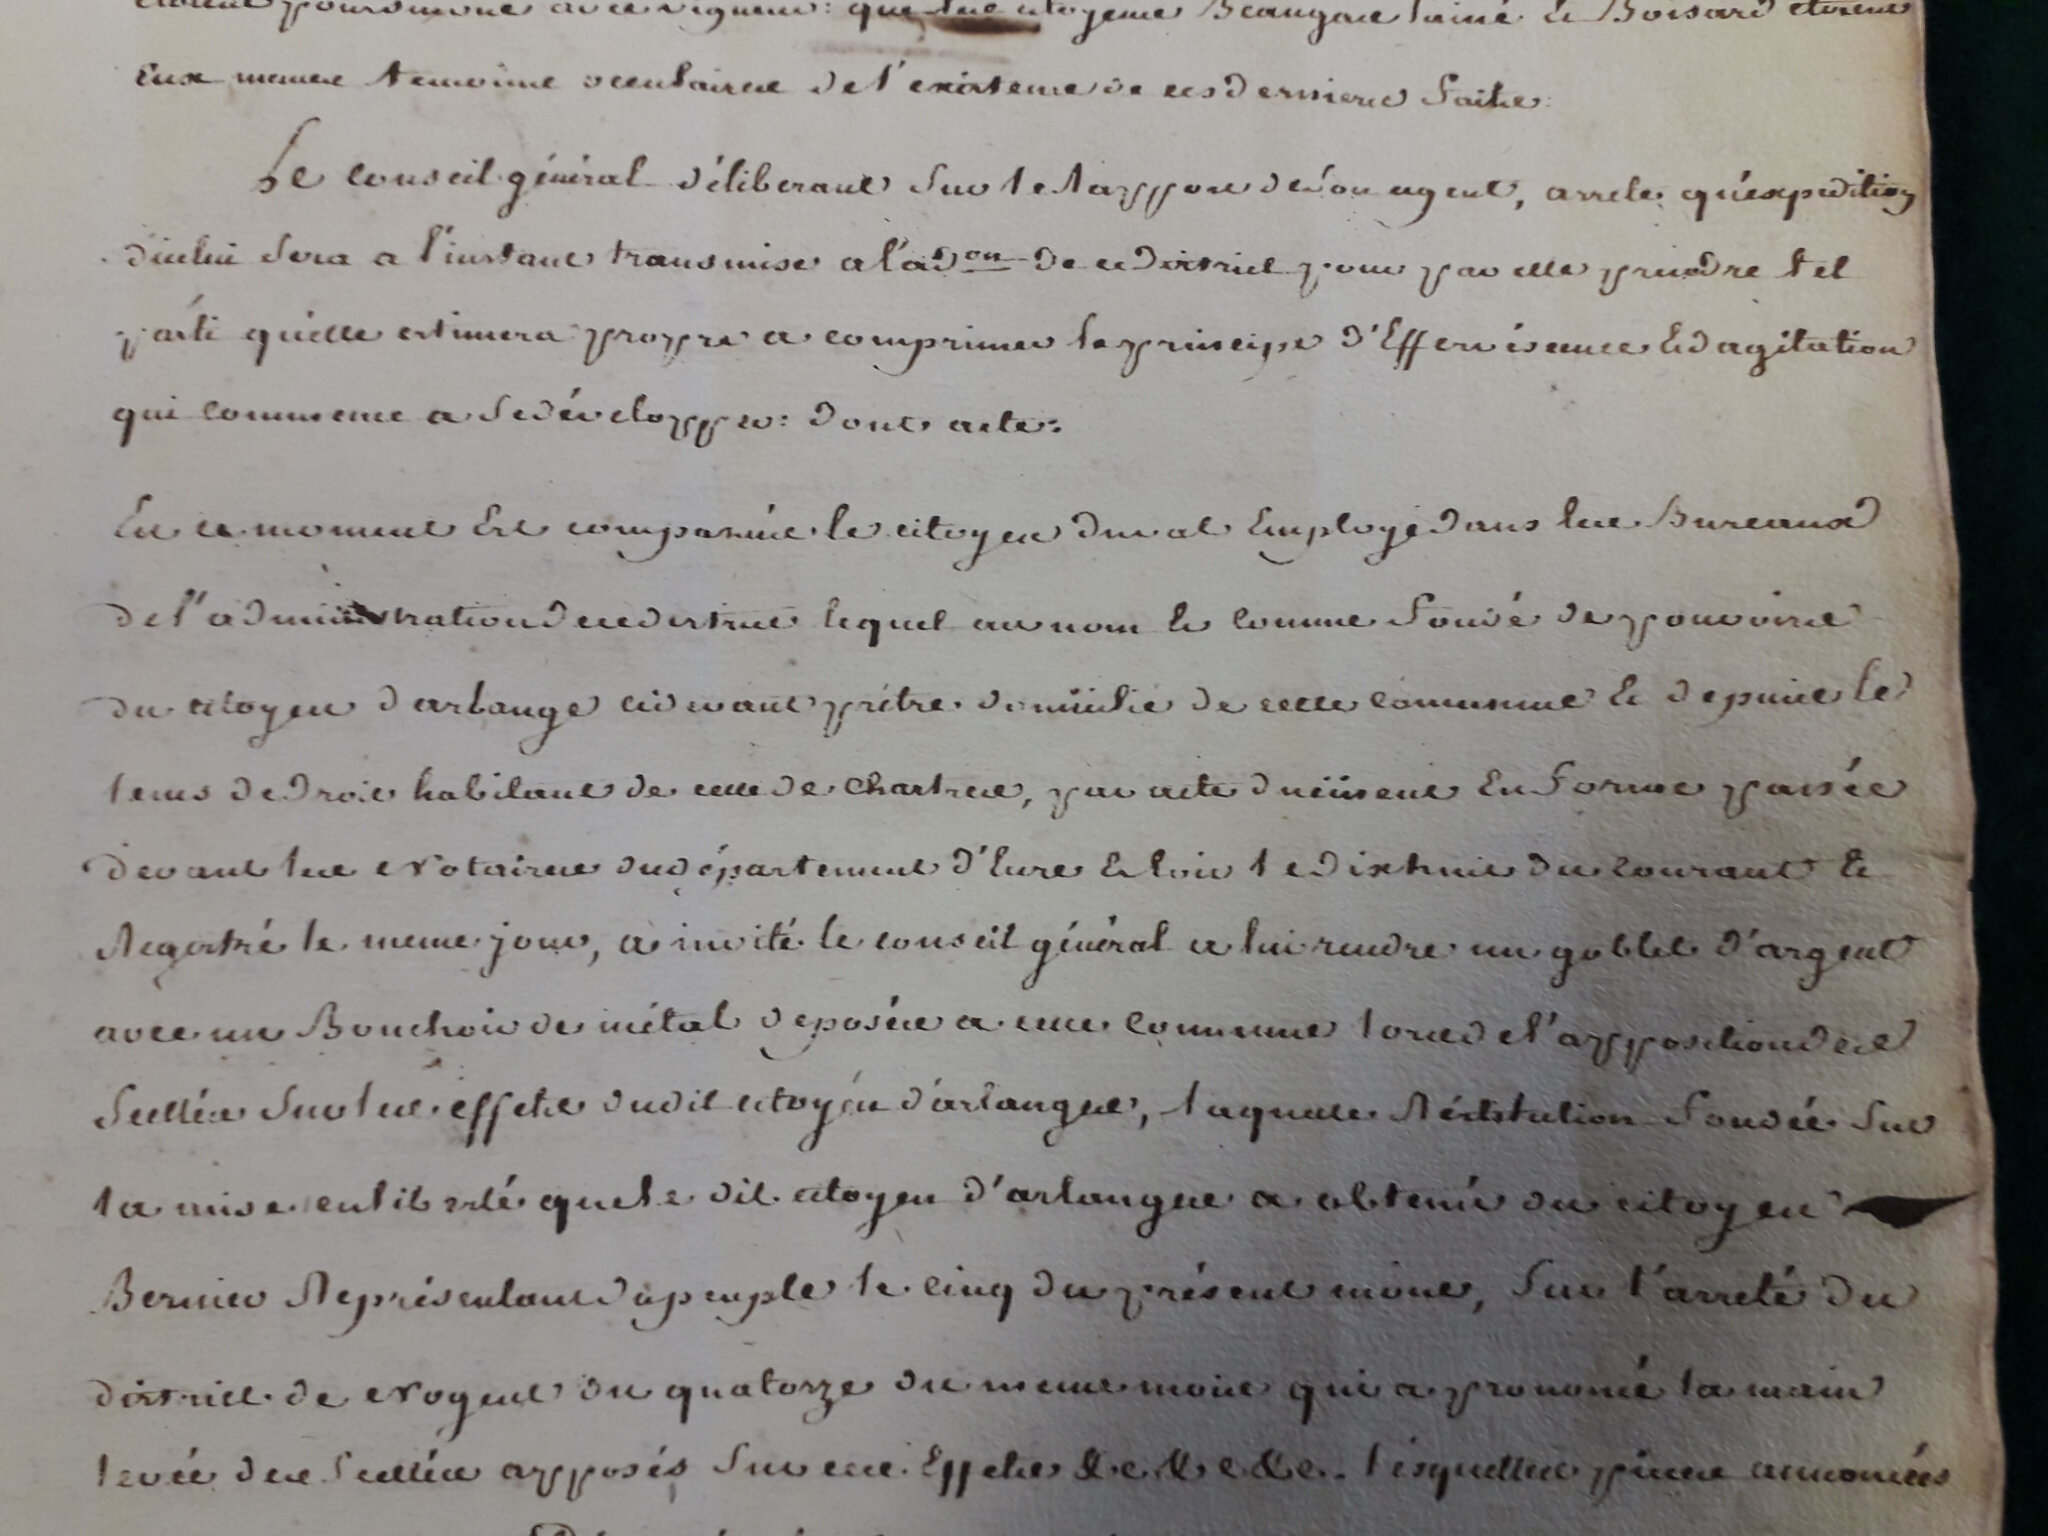 avec vigueur: que les citoyens Beaugas lainé & Boisard etoient
Eux memes temoins occulaires de l'existence de ces derniers faits:
Le Conseil général déliberant sur le Rapport de son agent, arrete qu'expedition
d'icelui sera a l'instant transmise a l'adon de ce district pour par elle prendre tel
parti qu'elle estimera propre a comprimer le principe d'Effervéscence & d'agitation
qui commence a se développer: dont acte:
En ce moment Est comparu le citoyen Duval Employé dans les Bureaux
de l'administration de ce district lequel au nom & comme fondé de pouvoirs
du citoyen d'arlange cidevant prêtre domicilié de cette commune & depuis le
tems de droit habitant de celle de Chartres, par acte duement En forme passée
devant les Notaires du département d'Eure & loir le dixhuit du courant &
Regístré le meme jour, a invité le conseil général a lui rendre un goblet d'argent
avec un Bouchoir de métal déposés a cette commune lors de l'apposition des
scellés sur les effets dudit citoyen d'arlangue, laquelle Réstitution fondée sur
la mise en liberté que le dit citoyen d'arlangue a obtenue du citoyen
Bernier Représentant du peuple le cinq du présent mois, sur l'arreté du
district de Nogent du quatorze du meme mois qui a prononcé la main
levée des scellés apposés sur ces Effets &c &c &c. lésquelles pièces annoncées